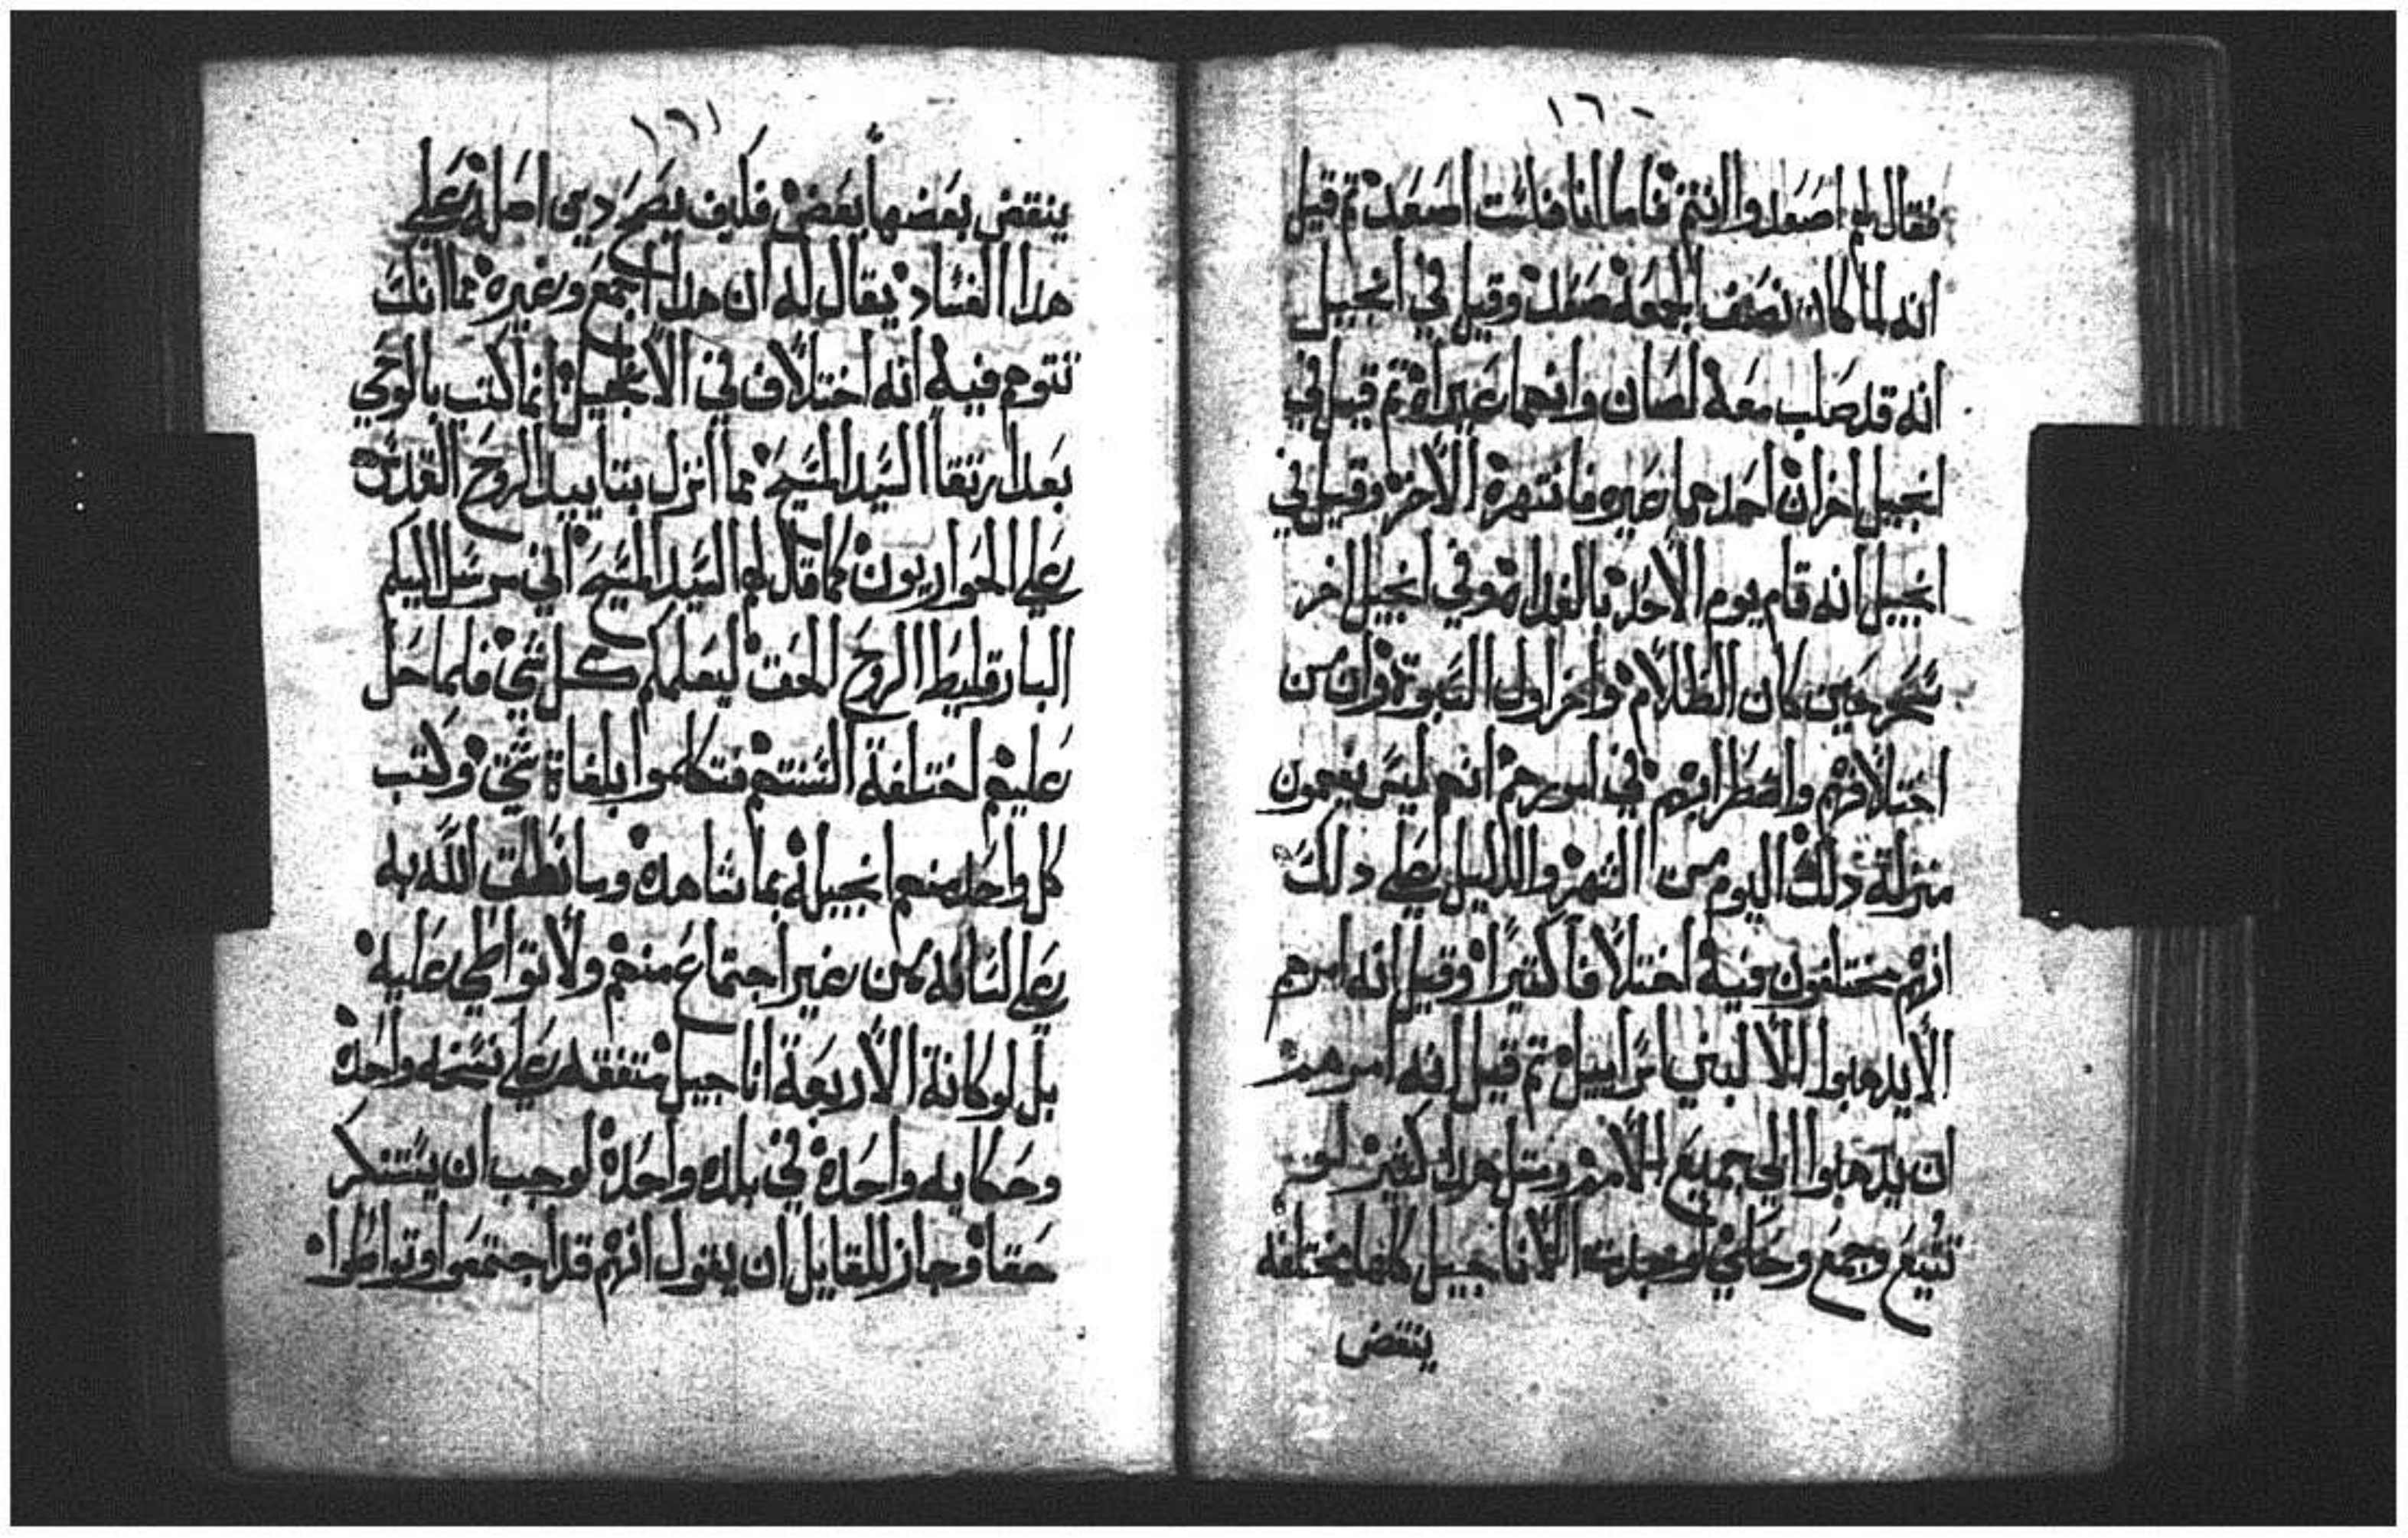 ١٦٠
فقال لهم اصعدوا انتم فاما انا فلست اصعد ثم قيل
انه لما كان نصف الجمعة صعد وقيل في انجيل
انه قد صلب معه لصان وانهما عيراه ثم قيل في
انجيل اخر ان احدهما عيره فانتهره الاخر وقيل في
انجيل انه قام يوم الاحد بالغداه وفي انجيل اخر
سحر حين كان الظلام واخر اول وان من
اختلافهم واضطرابهم في امورهم انهم ليس يفهمون
منزلة دلك اليوم من الشهر والدليل على دلك
انهم مختلفون فيه اختلافا كثيرا وقيل انه امرهم
الا يدهبوا الا لبني اسراييل ثم قيل انه امرهم
ان يدهبوا الي جميع الامم ومثل هدا كثير لمن
تتبع وجمع وحكي لوجدت الاناجيل كلها مختلفه
ينقض
١٦١
ينقض بعضها بعض فكيف يصح دين اصله على
هدا الفساد يقال له ان هدا اجمع وغيره مما انك
تتوهم فيه انه اختلاف في الانجيل انما كتب بالوحي
بعد ارتقا السيد المسيح مما انزل بتاييد الروح القدس
على الحواريون كما قال لهم السيد المسيح اني مرسل اليكم
البارقليط الروح الحق ليعلمكم كل شي فلما حل
عليهم اختلفة السنتهم فتكلموا بلغاة شتي وكتب
كل واحد منهم انجيله بما شاهده وما نطق الله به
على لسانه من غير اجتماع منهم ولا تواطي عليه
بل لو كانة الاربعة اناجيل متفقه على نسخه واحده
وحكايه واحدة في بلده واحدة لوجب ان يستنكر
حقا وجاز للقايل ان يقول انهم قد اجتمعوا وتواطوا